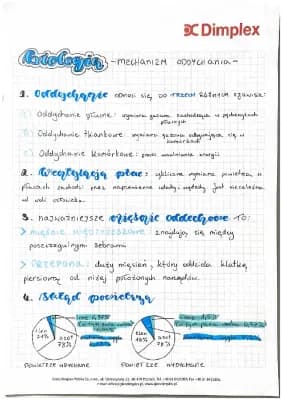 Dimplex
Biologia - MECHANIZM ODDYCHANIA -
1. Oddychanie odnosi się do TRZECH RÓŻNYCH ZJAWISK:
a) Oddychanie płucne: wymiana gazowa zachodząca w pęcherzykach
płucnych
b) Oddychanie tkankowe: wymiana gazowa odbywająca się w
komórkach
c) Oddychanie komórkowe: proces uwalniania energii
2. Wentylacja płuc: cykliczna wymiana powietrza w
płucach zachodzi przez naprzemienne wdechy i wydechy, jest niezależna
od woli człowieka.
3. najważniejsze mięśnie oddechowe TO:
> MIĘŚNIE MIĘDZYŻEBROWE: znajdują się między
poszczególnymi żebrami
> PRZEPONA: duży mięsień, który oddziela klatkę
piersiową od niżej położonych narządów.
4. Skład powietrza
tlen
21%
azot
78%
tlen
azot
78%
POWIETRZE WDYCHANE POWIETRZE WYDYCHANE